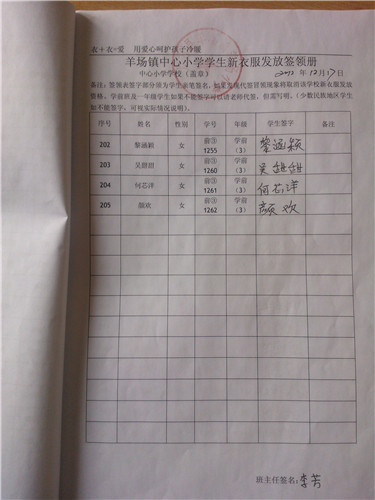 衣+农=爱 用爱心呵护孩子冷暖
羊场镇中心小学学生新衣服发放签领册
中心小学学校(盖章) 2012年12月17日
备注:签领表签字部分须为学生亲笔签名,如果发现代签冒领现象将取消该学校新衣服发放
资格。学前班及一年级学生如果不能签字可以请老师代签,但需写明。(少数民族地区学生
如不能签字,可视实际情况说明)。
序号 姓名 性别 学号 年级 学生签字 备注
202 黎涵颖 女 前③1255 学前(3) 黎涵颖
203 吴甜甜 女 前③1260 学前(3) 吴甜甜
204 何芯洋 女 前③1261 学前(3) 何芯洋
205 颜欢 女 前③1262 学前(3) 颜欢
班主任签名:李芳